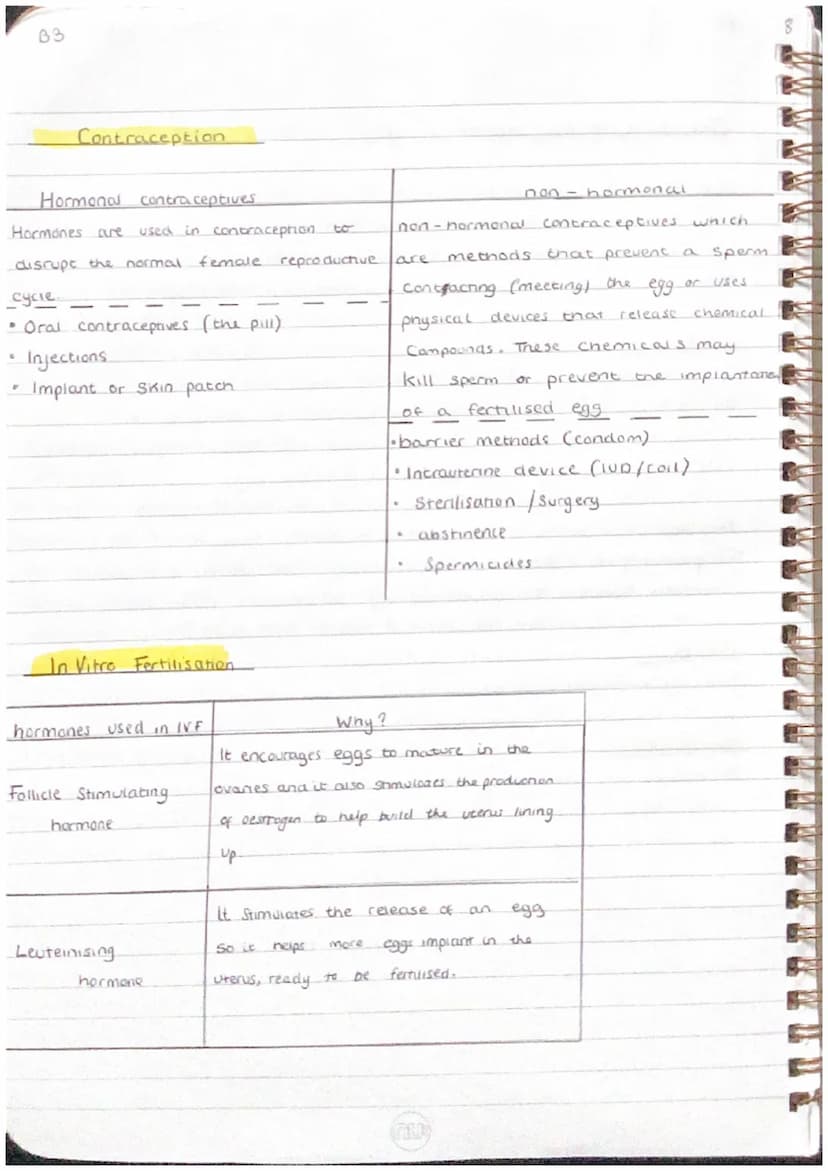 B3
8
Contraception
Hormonal contraceptives
Hormones are used in contraception to
disrupt the normal female reproductive
cycle.
• Oral contraceptives (the pill)
• Injections
• Implant or skin patch
non-hormonal
non-hormonal contraceptives which
are methods that prevent a sperm
contacting (meeting) the egg or uses
physical devices that release chemical
compounds. These chemicals may
kill sperm or prevent the implantation
of a fertilised egg
• barrier methods (condom)
• Intrauterine device (IUD/coil)
• Sterilisation / Surgery
• abstinence
• Spermicides
In Vitro Fertilisation
hormones used in IVF
Why?
Follicle Stimulating
hormone
It encourages eggs to mature in the
ovaries and it also stimulates the production
of oestrogen to help build the uterus lining
up.
Leuteinising
hormone
It stimulates the release of an egg
so it helps more eggs implant in the
uterus, ready to be fertilised.